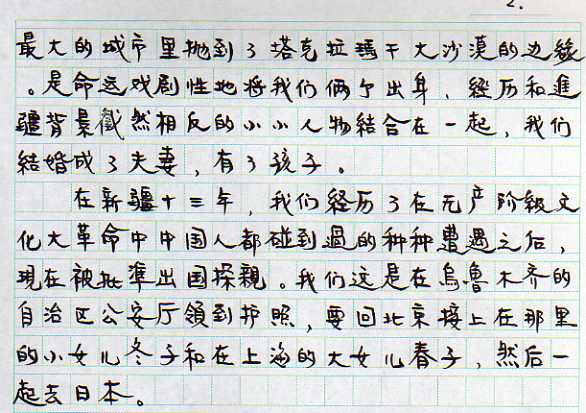 2.
最大的城市里抛到了塔克拉瑪干大沙漠的边缘
。是命运戏剧性地将我们俩个出身、経历和進
疆背景截然相反的小小人物結合在一起，我们
結婚成了夫妻，有了孩子。
在新疆十三年，我们経历了在无产阶级文
化大革命中中国人都碰到過的种种遭遇之后，
現在被批準出国探親。我们这是在烏鲁木齐的
自治区公安厅領到护照，要回北京接上在那里
的小女儿冬子和在上海的大女儿春子，然后一
起去日本。